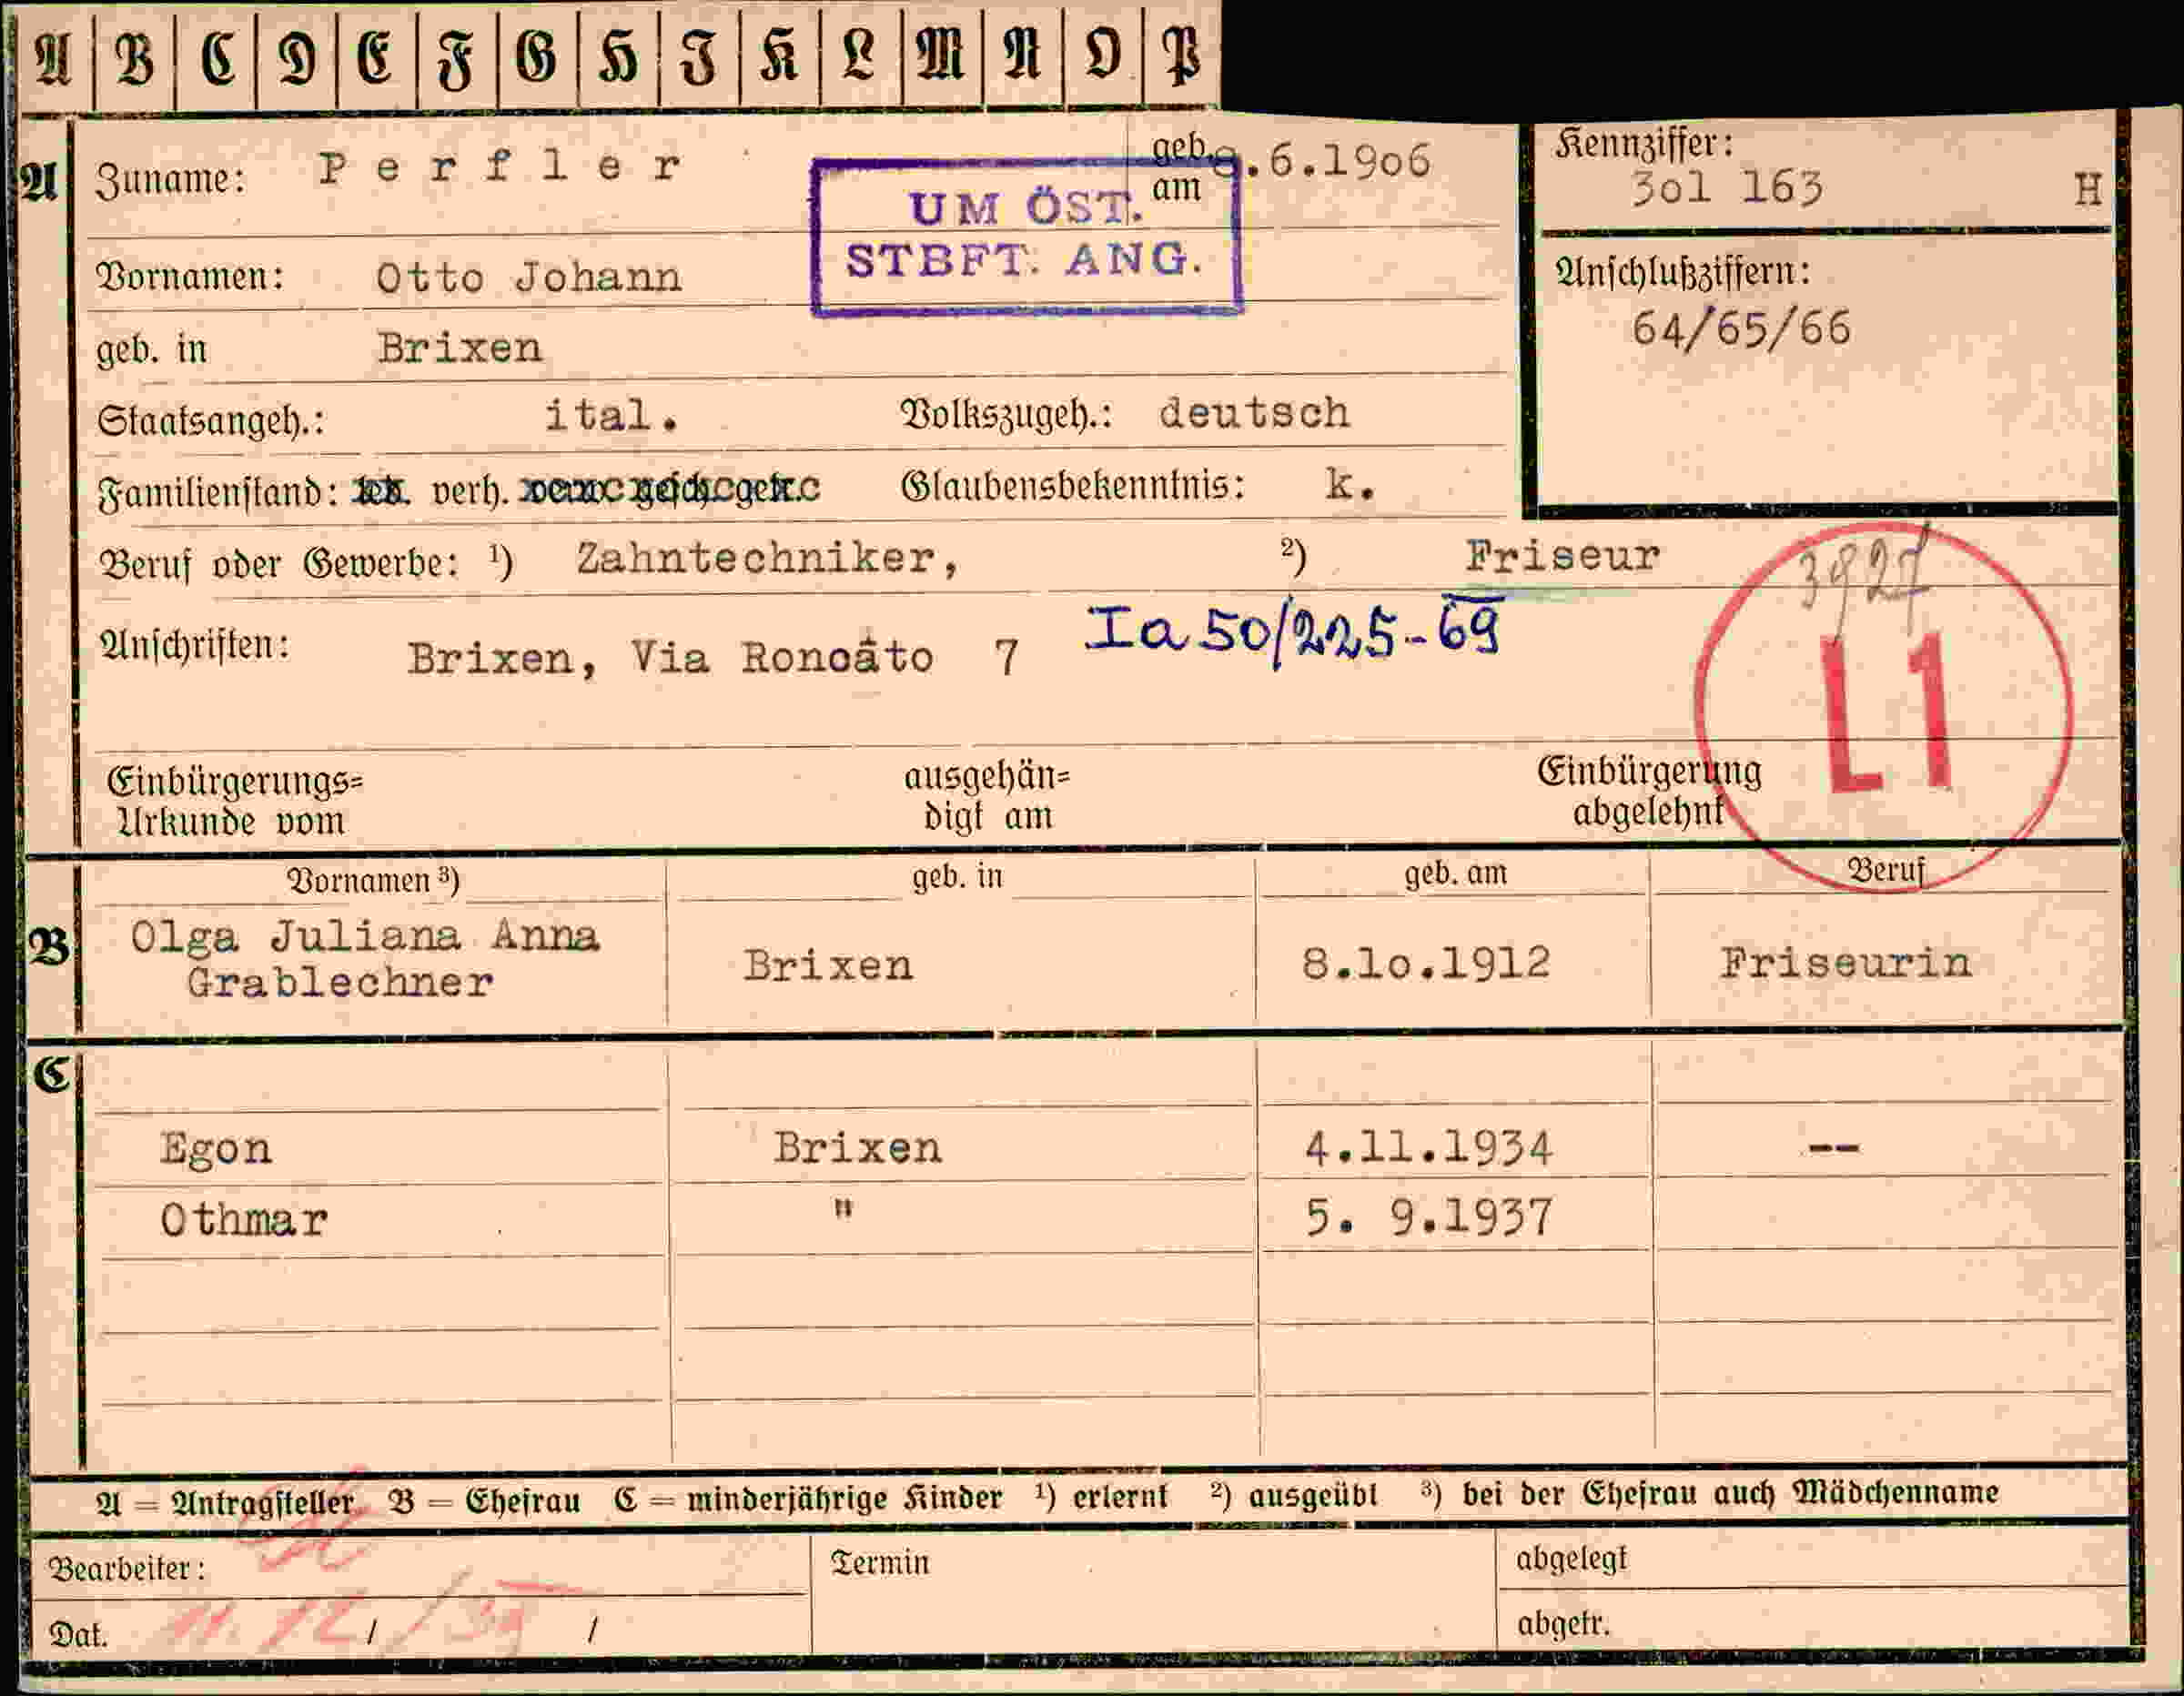 A B C D E F G H I K L M N O P
A Zuname: Perfler geb. am .6.19o6
Kennziffer: 3o1 163 H
UM ÖST.
STBFT. ANG.
Vornamen: Otto Johann
Anschlußziffern:
64/65/66
geb. in Brixen
Staatsangeh.: ital. Volkszugeh.: deutsch
Familienstand: verh. Glaubensbekenntnis: k.
Beruf oder Gewerbe: ¹) Zahntechniker, ²) Friseur
Anschriften: Brixen, Via Roncáto 7 Ia 50/225-69
L1
Einbürgerungs=
Urkunde vom
ausgehän=
digt am
Einbürgerung
abgelehnt
Vornamen ³) geb. in geb. am Beruf
B Olga Juliana Anna
Grablechner Brixen 8.1o.1912 Friseurin
C
Egon Brixen 4.11.1934 --
Othmar " 5. 9.1937
A = Antragsteller B = Ehefrau C = minderjährige Kinder ¹) erlernt ²) ausgeübt ³) bei der Ehefrau auch Mädchenname
Bearbeiter: Termin abgelegt
Dat. 11. 12 / / abgetr.